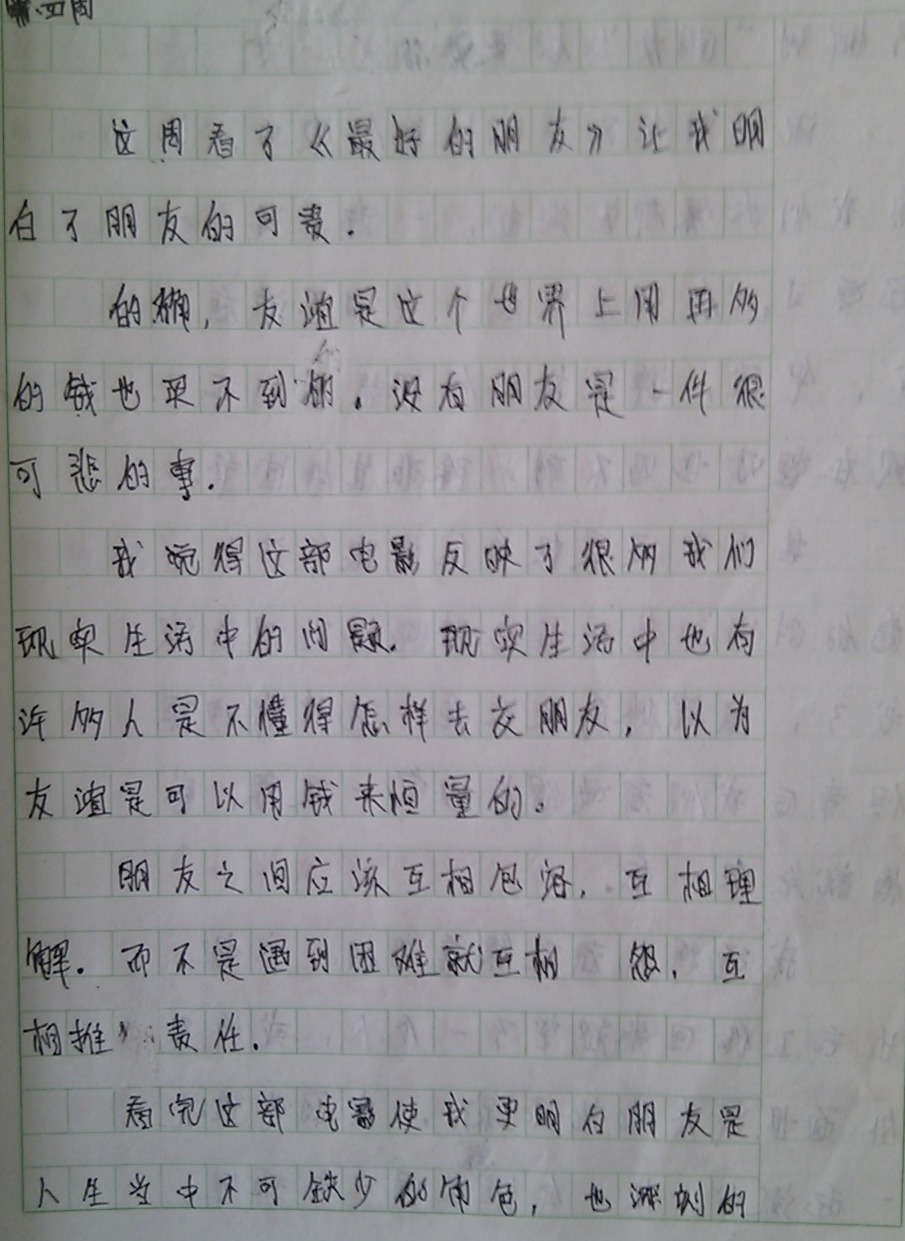 第四周
这周看了《最好的朋友》让我明
白了朋友的可贵.
的确,友谊是这个世界上用再多
的钱也买不到的。没有朋友是一件很
可悲的事.
我觉得这部电影反映了很多我们
现实生活中的问题.现实生活中也有
许多人是不懂得怎样去交朋友,以为
友谊是可以用钱来恒量的。
朋友之间应该互相包容,互相理
解.而不是遇到困难就互相 怨,互
相推 责任.
看完这部电影使我更明白朋友是
人生当中不可缺少的角色,也深刻的